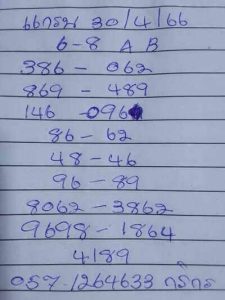 30/4/66
6-8 A B
386 - 062
869 - 489
146 - 096
86 - 62
48 - 46
96 - 89
8062 - 3862
9698 - 1864
4189
057-1264633